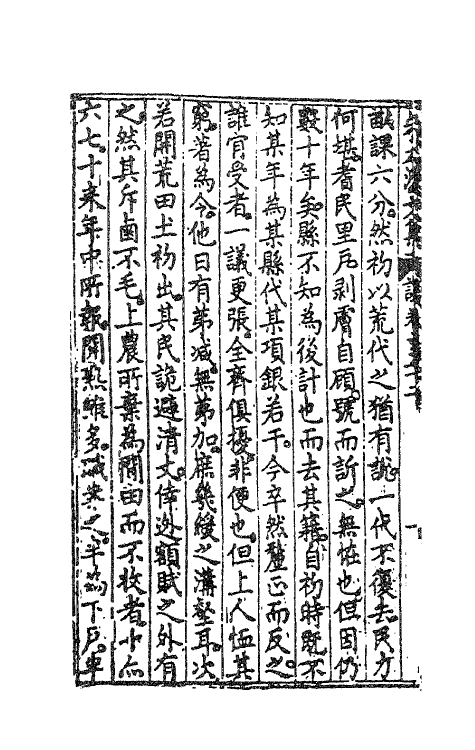 畝課六分。然初以荒代之猶有說。一代不復去。民力
何堪。耆民里戹剥膚自顧。號而訴之。無恠也。但因仍
數十年矣。縣不知為後計也。而去其籍。自初時既不
知某年為某縣代某項銀若干。今卒然釐正而反之。
誰肯受者。一議更張。全齊俱擾。非便也。但上人恤其
窮。著為令。他日有苐減。無苐加。庶幾緩之溝壑耳。次
若開荒田土初出。其民詭避清丈。倖逊額賦之外有
之。然其斥鹵不毛。上農所棄為閒田而不收者。十亦
六七。十来年中所報。開㸃雖多。減
之半為下戶。車